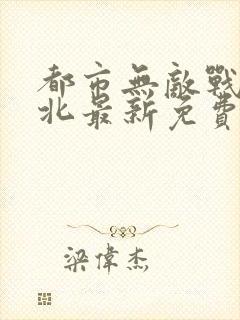 都市無敵戰
北最新免費
梁偉杰